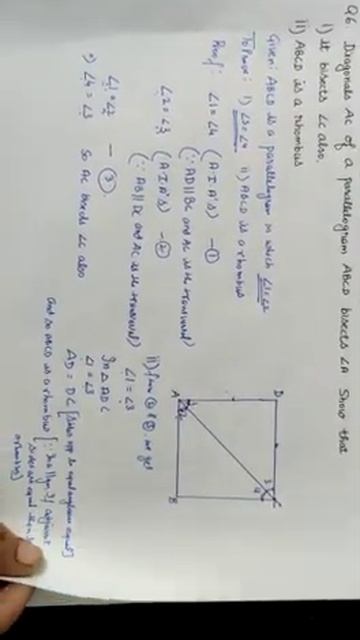 Q6. Diagonals AC of a parallelogram ABCD bisects ∠A Show that
i) it bisects ∠C also.
ii) ABCD is a rhombus
Given: ABCD is a parallelogram in which ∠1=∠2
To Prove: i) ∠3=∠4 ii) ABCD is a rhombus
Proof: ∠1 = ∠4 (A·I·A'S) —①
(∵ AD || BC and AC is the transversal)
∠2 = ∠3 (A·I·A'S) —②
(∵ AB || DC and AC is the transversal)
∠1 = ∠2 — ③.
∠4 = ∠3 So AC bisects ∠C also
ii) from ② & ③, we get
∠1 = ∠3
In △ADC
∠1 = ∠3
AD = DC [sides opp to equal angles are equal]
And so ABCD is a rhombus [∵ In a ||gm, If adjacent
sides are equal then
rhombus]
D
C
3
4
A
B